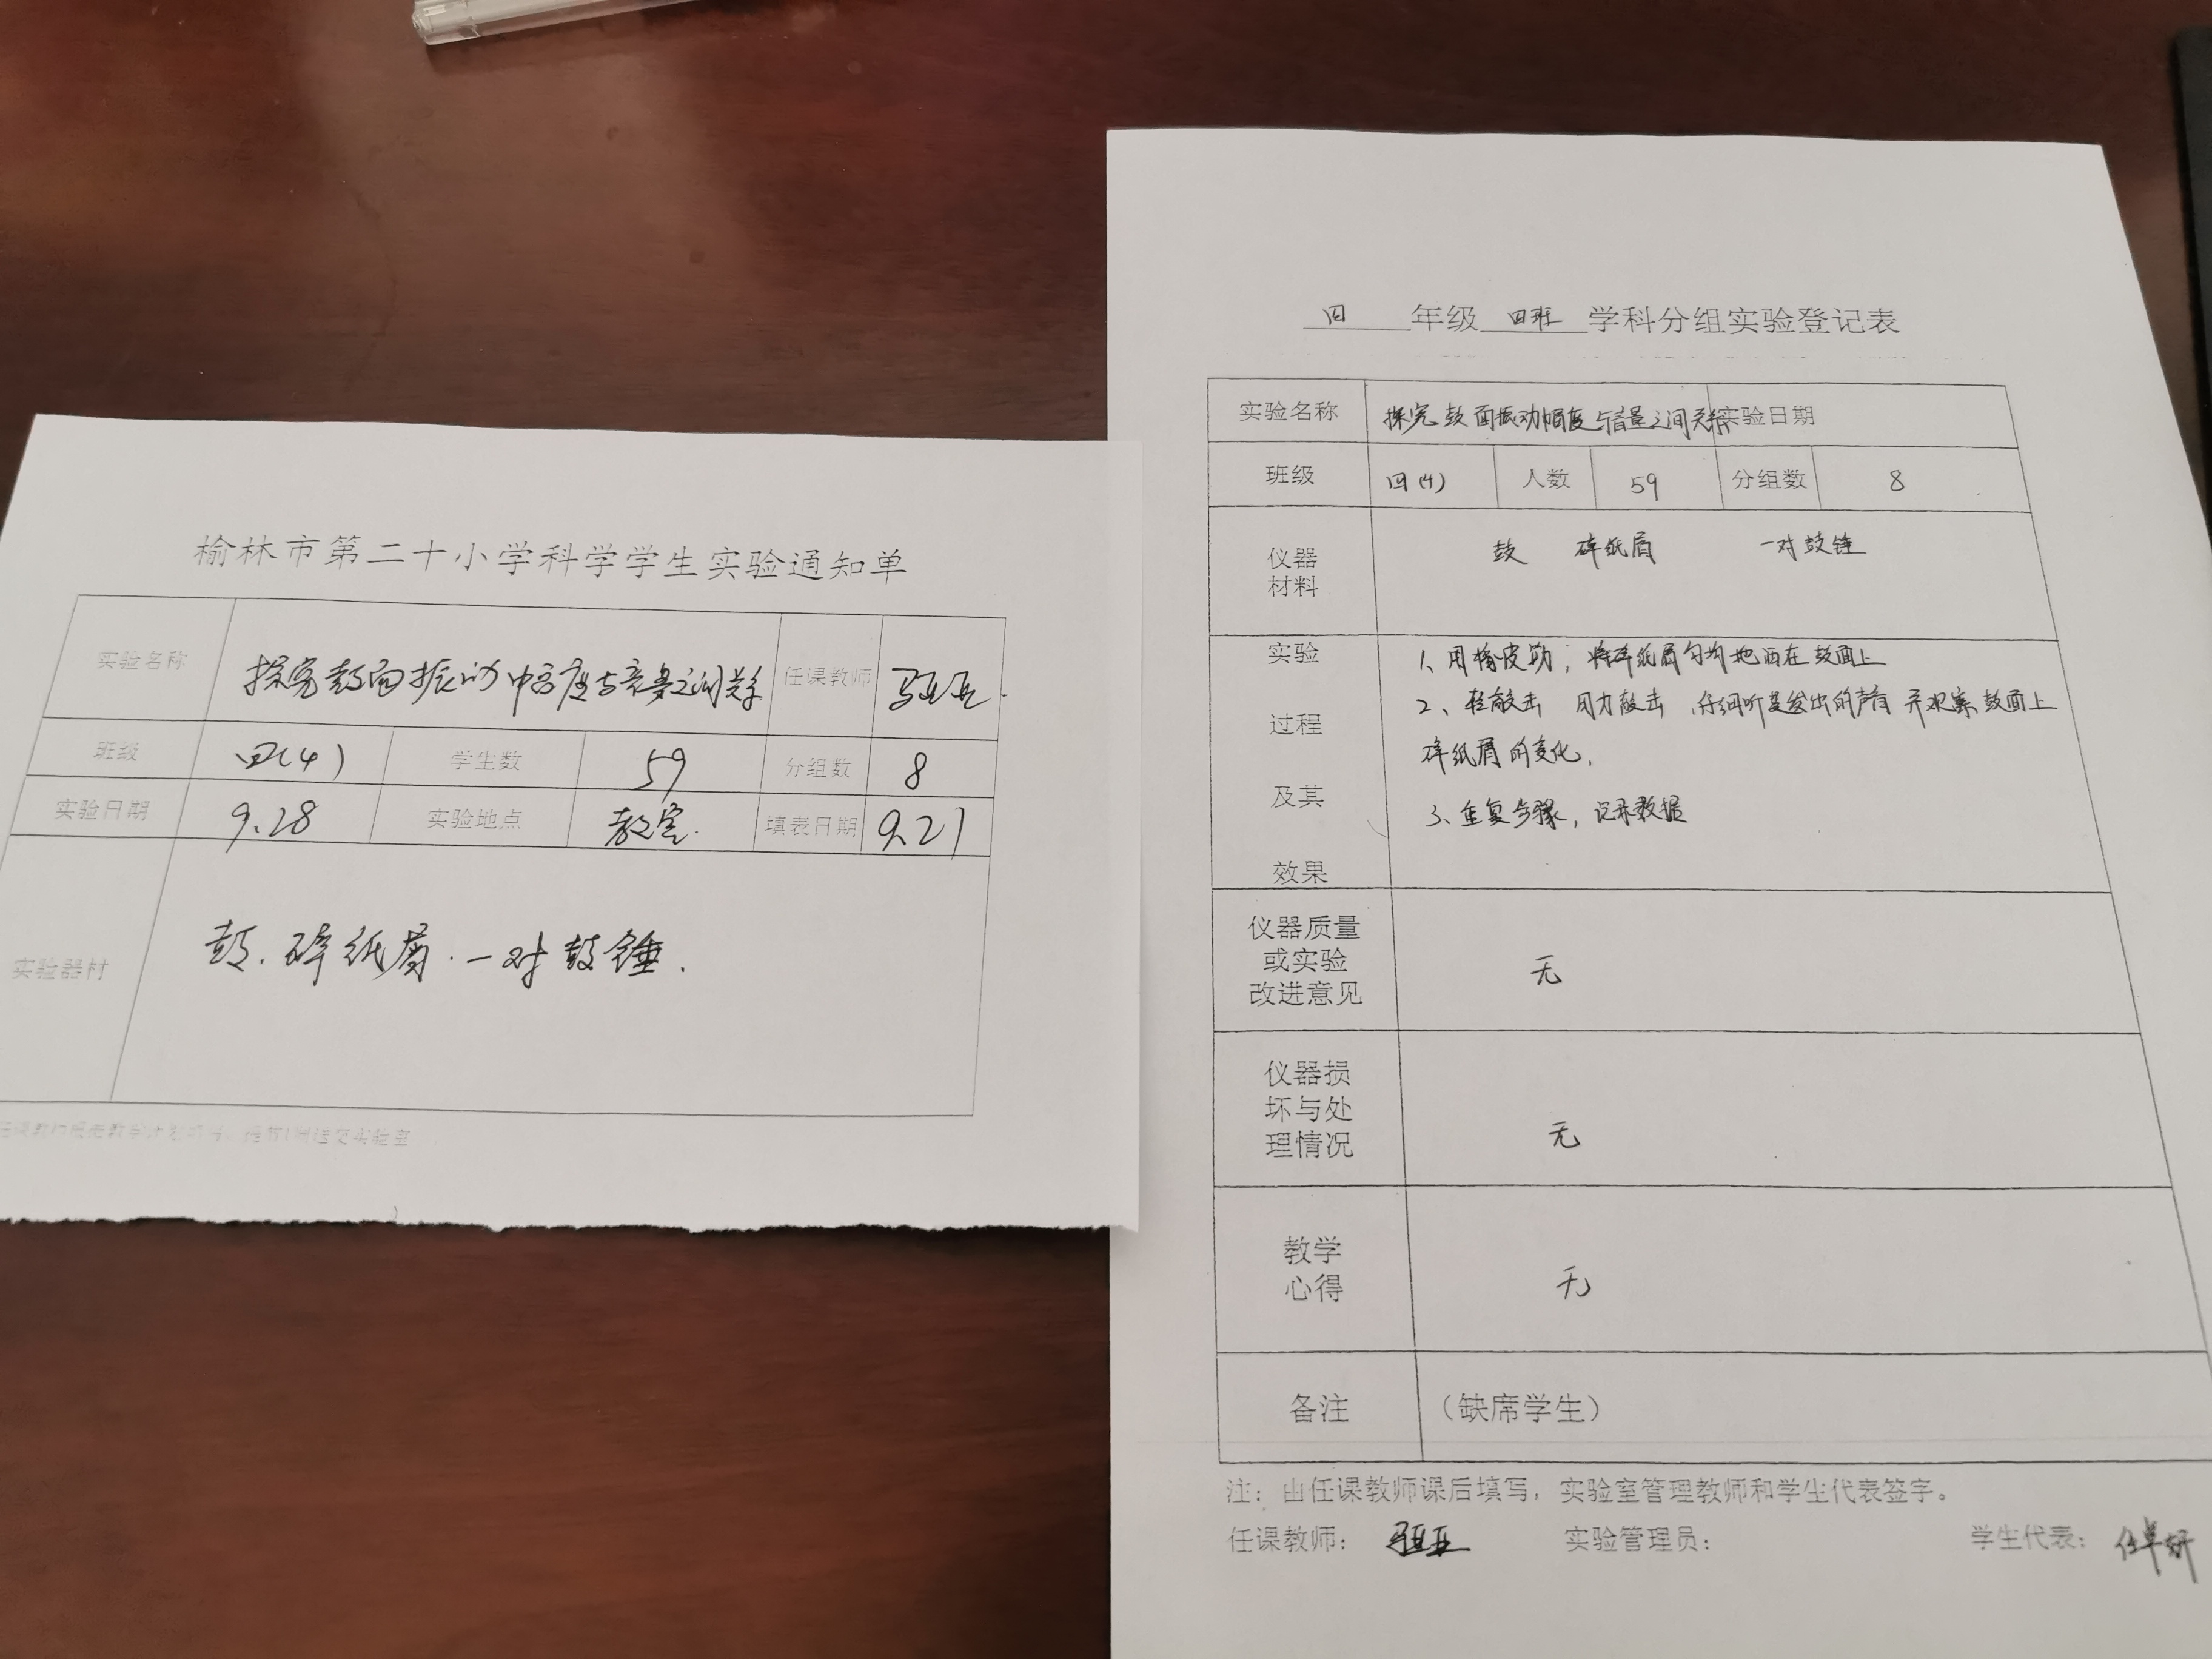 榆林市第二十小学科学学生实验通知单
实验名称 探究鼓面振动幅度与音量之间关系 任课教师 马亚亚
班级 四(4) 学生数 59 分组数 8
实验日期 9.28 实验地点 教室. 填表日期 9.21
实验器材 鼓. 碎纸屑. 一对鼓锤.
四 年级 四班 学科分组实验登记表
实验名称 探究鼓面振动幅度与音量之间关系 实验日期
班级 四(4) 人数 59 分组数 8
仪器材料 鼓 碎纸屑 一对鼓锤
实验过程及其效果
1、用橡皮筋,将碎纸屑匀均地洒在鼓面上
2、轻敲击 用力敲击,仔细听是发出的声音 并观察鼓面上
碎纸屑的变化.
3、重复步骤,记录数据
仪器质量或实验改进意见 无
仪器损坏与处理情况 无
教学心得 无
备注 (缺席学生)
注:由任课教师课后填写,实验室管理教师和学生代表签字。
任课教师: 马亚亚 实验管理员: 学生代表: 任卓妍